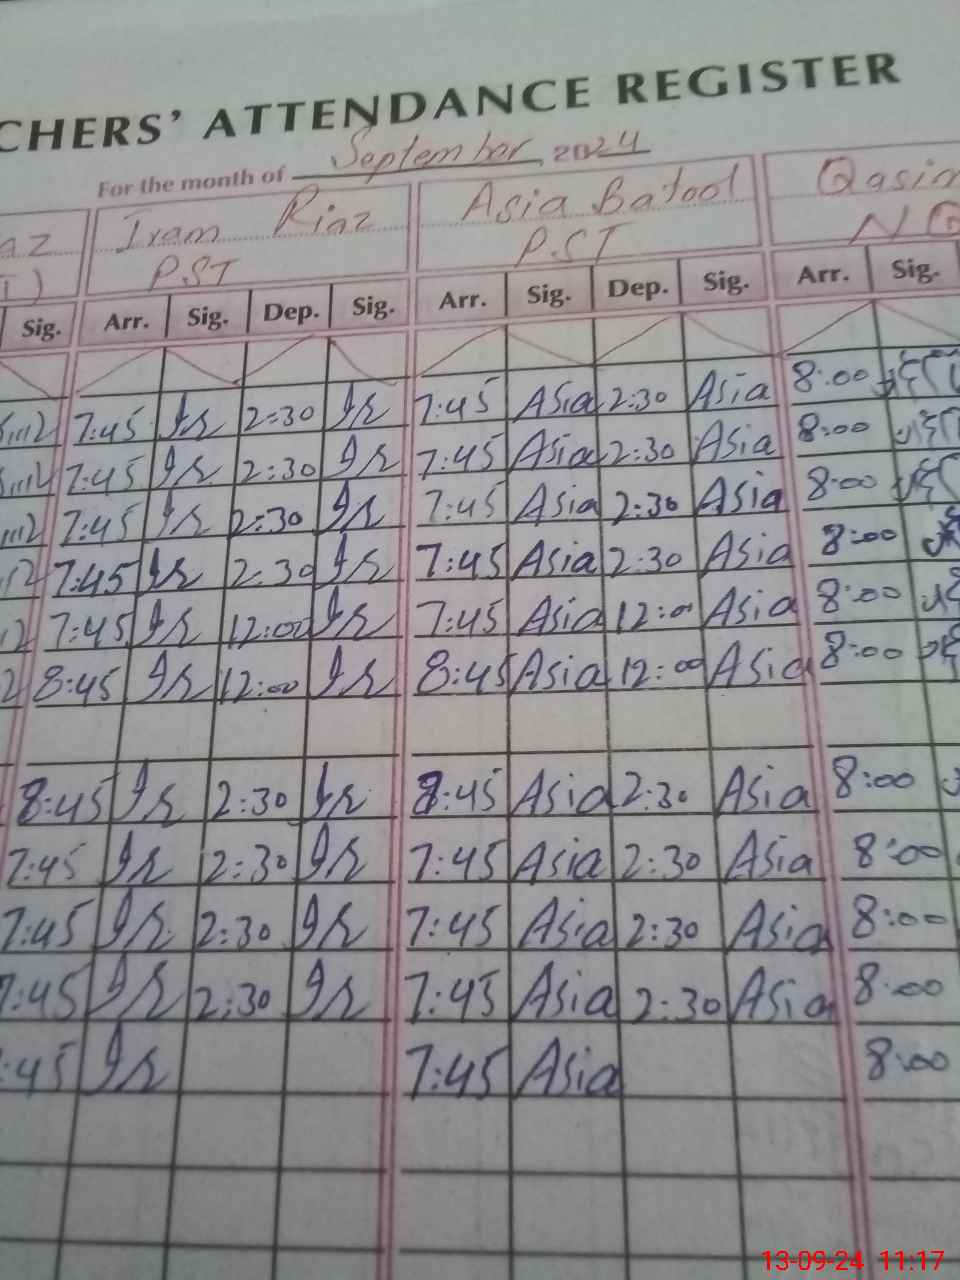 CHERS' ATTENDANCE REGISTER
For the month of September, 2024
az Iram Riaz Asia Batool Qasim
PST PST
Sig. Arr. Sig. Dep. Sig. Arr. Sig. Dep. Sig. Arr. Sig.
7:45 Ir 2:30 Ir 7:45 Asia 2:30 Asia 8:00
7:45 Ir 2:30 Ir 7:45 Asia 2:30 Asia 8:00
7:45 Ir 2:30 Ir 7:45 Asia 2:30 Asia 8:00
7:45 Ir 2:30 Ir 7:45 Asia 2:30 Asia 8:00
7:45 Ir 12:00 Ir 7:45 Asia 12:00 Asia 8:00
8:45 Ir 12:00 Ir 8:45 Asia 12:00 Asia 8:00
8:45 Ir 2:30 Ir 8:45 Asia 2:30 Asia 8:00
7:45 Ir 2:30 Ir 7:45 Asia 2:30 Asia 8:00
7:45 Ir 2:30 Ir 7:45 Asia 2:30 Asia 8:00
7:45 Ir 2:30 Ir 7:45 Asia 2:30 Asia 8:00
:45 Ir 7:45 Asia 8:00
13-09-24 11:17